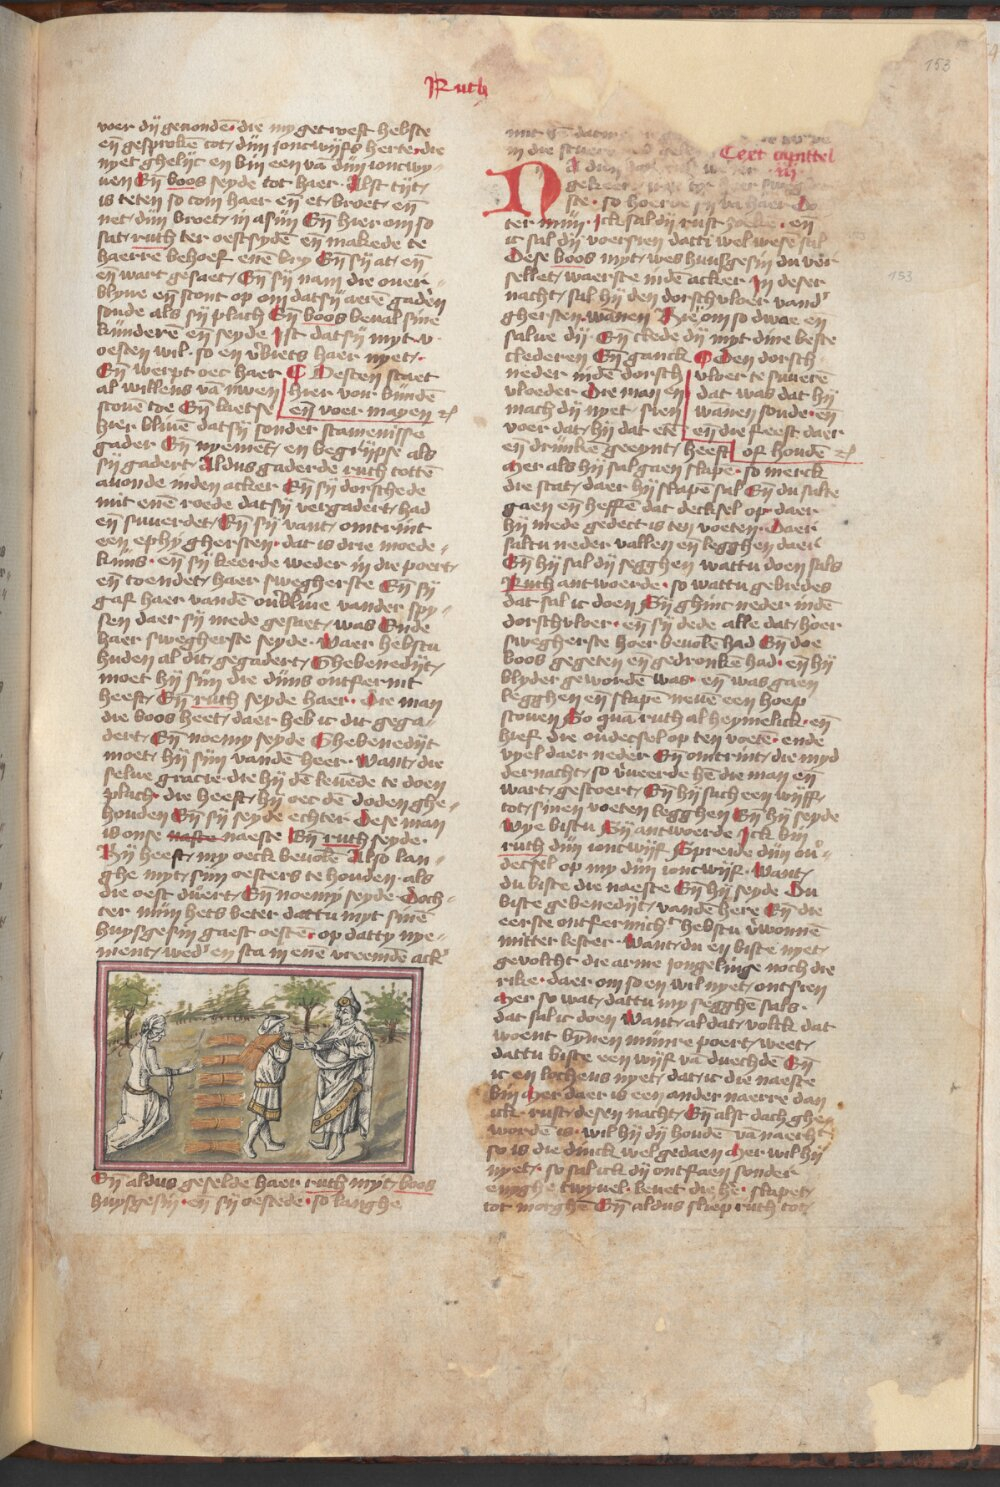 Ruth
153
voer dij genonden· die my getroest hebste
en̄ gesprokē tot dijn joncwijfs herte· die
nyet ghelijc en bin een vā dijn joncwy-
uen En̄ boos seyde tot haer· Alst tijt
is teten so com haer en̄ et broet en̄
net dijn broet in asijn En̄ hier om so
sat ruth ter oestsyden en̄ makede te
haerre behoef enē bry En̄ sij at en̄
en wart gesaet En̄ sij nam die ouer-
blyue en̄ stont op om datsij aerē gaden
soude als sij plach En̄ boos beual sine
kinderē en̄ seyde Ist datsij myt v
oesten wil· so en v̓biets haer nyet·
En̄ werpt oec haer
al willens vā uwen
scouē toe En̄ laetse
Oesten staet
hier vor binden
en̄ voer mayen
hier bliuē datsij sonder scamenisse
gader En̄ nyemēt en begrijpe als
sij gadert Aldus gaderde ruth tottē
auonde inden acker En̄ sij dorschede
mit enē roede datsij vergadert had
en̄ suuerdet En̄ sij vant omtrint
een ephy ghersten· dat is drie moede-
kijns· en̄ sij keerde weder in die poert
en̄ toendet haer swegherste En̄ sij
gaf haer vandē ou̓bliue vander spy-
sen daer sij mede gesaet was Ende
haer swegherste seyde· Waer hebstu
huden al dit gegadert Ghebenedijt
moet hij sijn die dijns ontfermt
heeft En̄ ruth seyde haer· Die man
die boos heet daer heb ic dit gega-
dert En̄ noemy seyde Ghebenedijt
moet hij sijn vanden heer· Want die
selue gracie die hij dē leuēde te doen
plach· die heeft hij oec dē doden ghe-
houden En̄ sij seyde echter Dese man
is onse naeste En̄ ruth seyde·
Hij heeft my oeck beuolē Also lan-
ghe myt sijn oesters te houden· als
die oest duert En̄ noemy seyde Doch-
ter mijn hets beter dattu myt sinē
huysgesin gaest oestē· op datty nye-
ment wed̓ en sta in enē vreemdē ack̓
En̄ aldus geselde haer ruth myt boos
huysgesin· en̄ sij oestede· so langhe
in die
Cext capittel
iij
ste· so hoerde sij va haer Do
ter mijn· Ick sal dij rust en̄
ic sal dij voersien datti wel wese sal
Dese boos myt wes huusgesin du ver
sellet waerste indē acker In deser
nacht sal hij den dorschvloer vand̓
ghersten wanen Hier om so dwae en̄
salue dij· En̄ clede dij myt dine beste
clederen En̄ ganck
neder indē dorsch
vloeder Die man en
mach dij nyet sien
voer dat hij dat etē
Den dorsch
vloer te suuerē
dat was dat hij
wanen soude· en̄
en̄ die feest daer
of houdē
en̄ drinkē geeynt heeft
Mer als hij sal gaen slapē· so merck
die stat daer hij slapē sal En̄ du salte
gaen en̄ heffē dat decksel op· daer
hij mede gedect is ten voeten· Daer
saltu neder vallen en̄ legghen daer
En̄ hij sal dij segghen wattu doen sals
Ruth antwoerde· so wattu gebiedes
dat sal ic doen En̄ ghinc neder indē
dorschvloer· en̄ sij dede alle dat hoer
swegherste hoer beuolē had En̄ doe
boos gegeten en̄ gedronkē had· en̄ hij
blyder gewordē was· en̄ was gaen
legghen en̄ slapē neuē een hoep
scouen So quā ruth al heymelick· en̄
hief die oudecsel op ten voetē· ende
vyel daer neder En̄ omtrint die myd
dernacht so v̓ueerde hē die man en̄
wart gestoert En̄ hij sach een wijff
tot sinen voeten legghen En̄ hij seyde
Wye bistu En̄ antwoerde Ick bin
ruth dijn joncwijf Spreide dijn ou̓-
decsel op my dijn joncwijf· Want
du biste die naeste En̄ hij seyde Du
biste gebenedijt vandē here En̄ die
eerste ontfermich̓ hebstu v̓wonnē
mitter lester· Want du en biste nyet
geuolcht die arme jongelinge noch die
rike· daer om so en wil nyet ontsien
Mer so wat dattu my segghē sals·
dat sal ic doen Want al dat volck dat
woent bynen mijnre poert weet
dattu biste een wijf vā duechdē En̄
ic en lochens nyet dat ic die naeste
bin Mer daer is een ander naerre dan
ick· rust desen nacht En̄ alst dach ghe
wordē is· wil hij dij houdē vā naerht
so is die dinck wel gedaen Mer wil hij
nyet· so sal ick dij ontfaen sonder
enyghe twyuel· leuet die he· slapet
tot morghē En̄ aldus sliep ruth tot
153